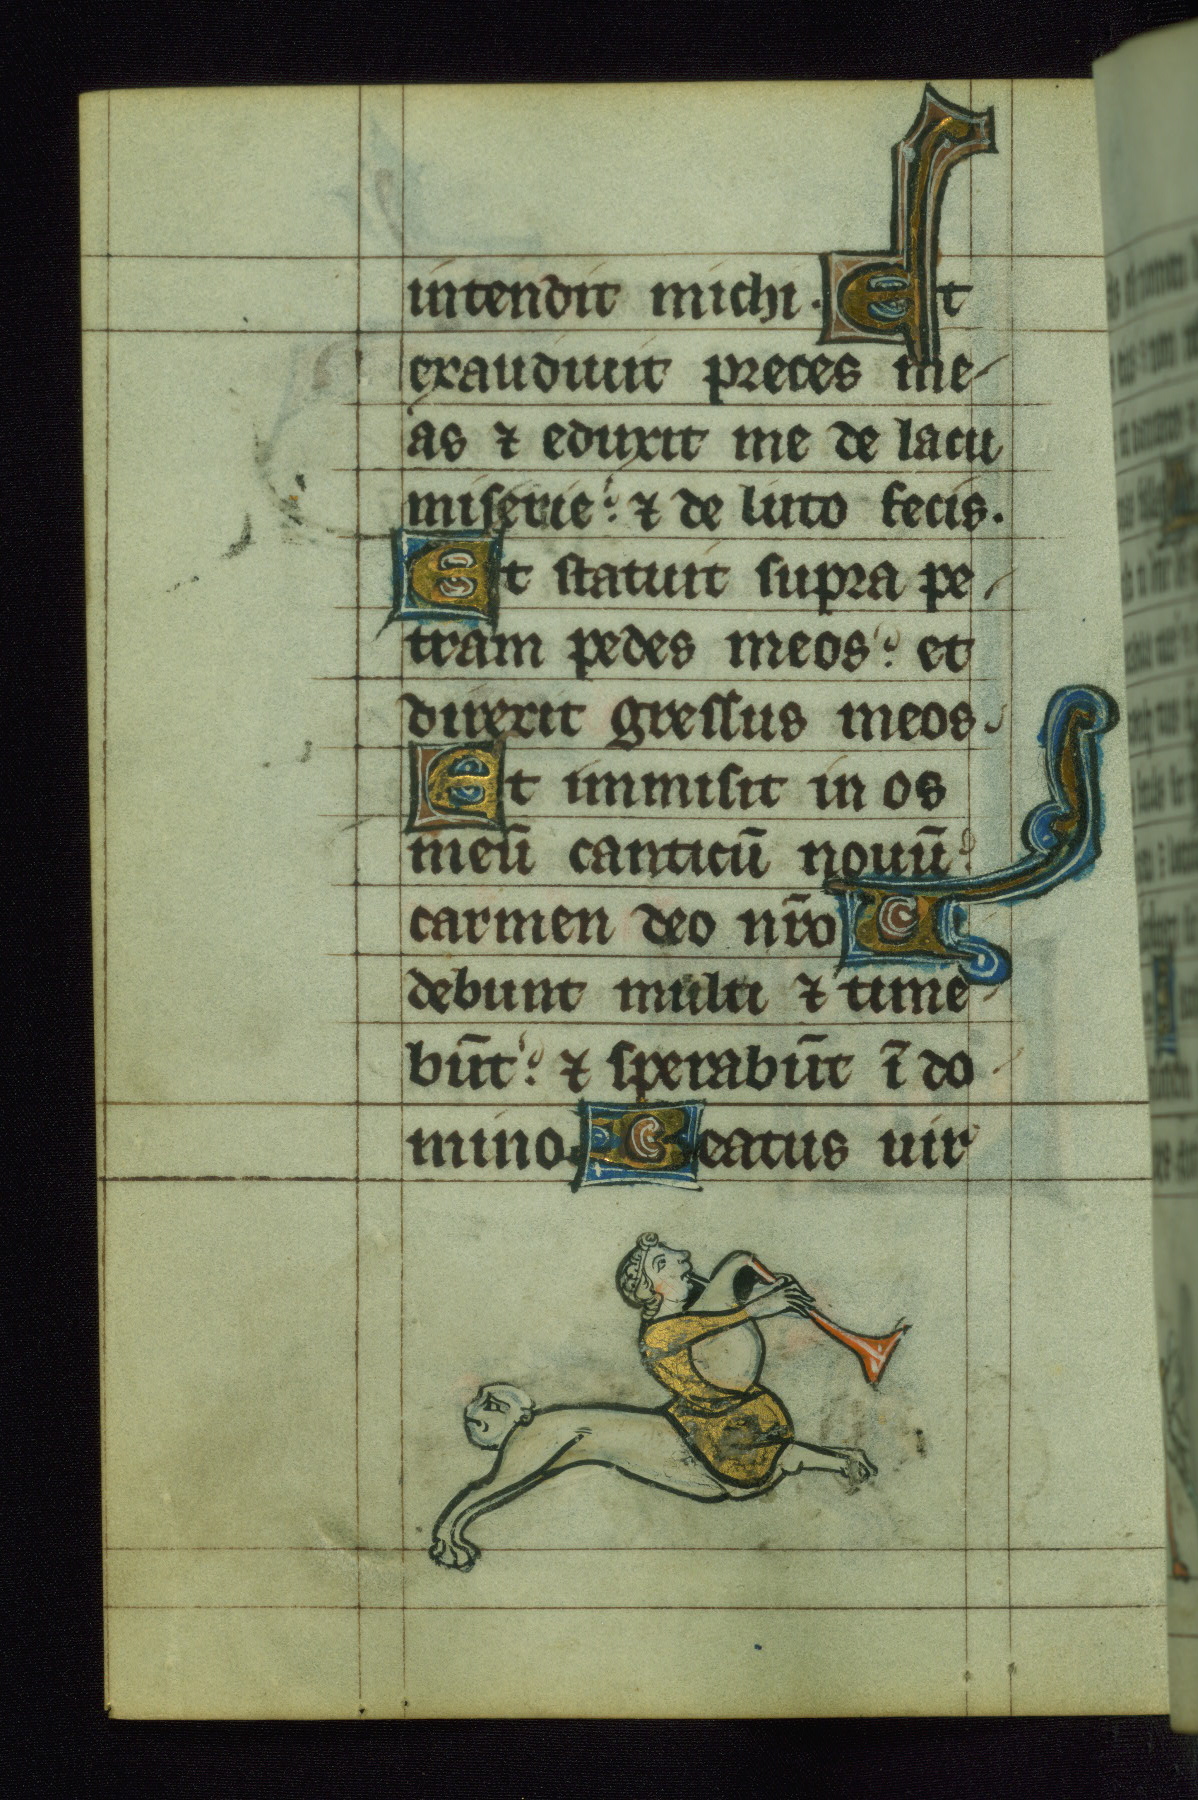 intendit michi. Et
exaudiuit preces me
as ⁊ eduxit me de lacu
miserie: ⁊ de luto fecis.
Et statuit supra pe
tram pedes meos: et
direxit gressus meos.
Et inmisit in os
meū canticū nouū:
carmen deo nr̄o U
debunt multi ⁊ time
būt: ⁊ sperabūt ī do
mino. Beatus uir